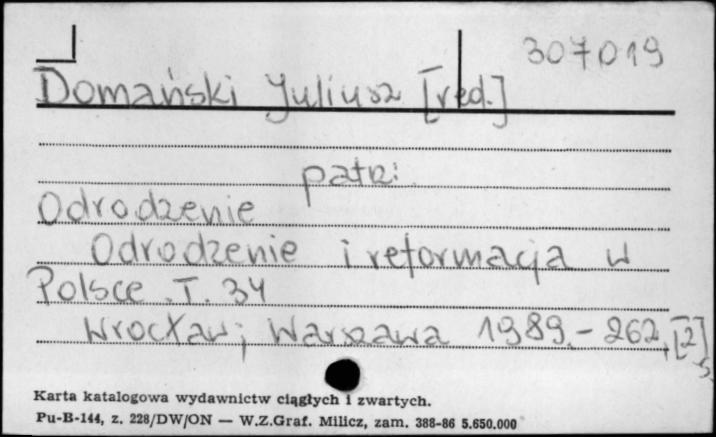 307019
Domański Juliusz [red.]
patrz:
Odrodzenie
Odrodzenie i reformacja w
Polsce. T. 34
Wrocław; Warszawa 1989. - 262, [2] s.
Karta katalogowa wydawnictw ciągłych i zwartych.
Pu-B-144, z. 228/DW/ON — W.Z.Graf. Milicz, zam. 388-86 5.650.000